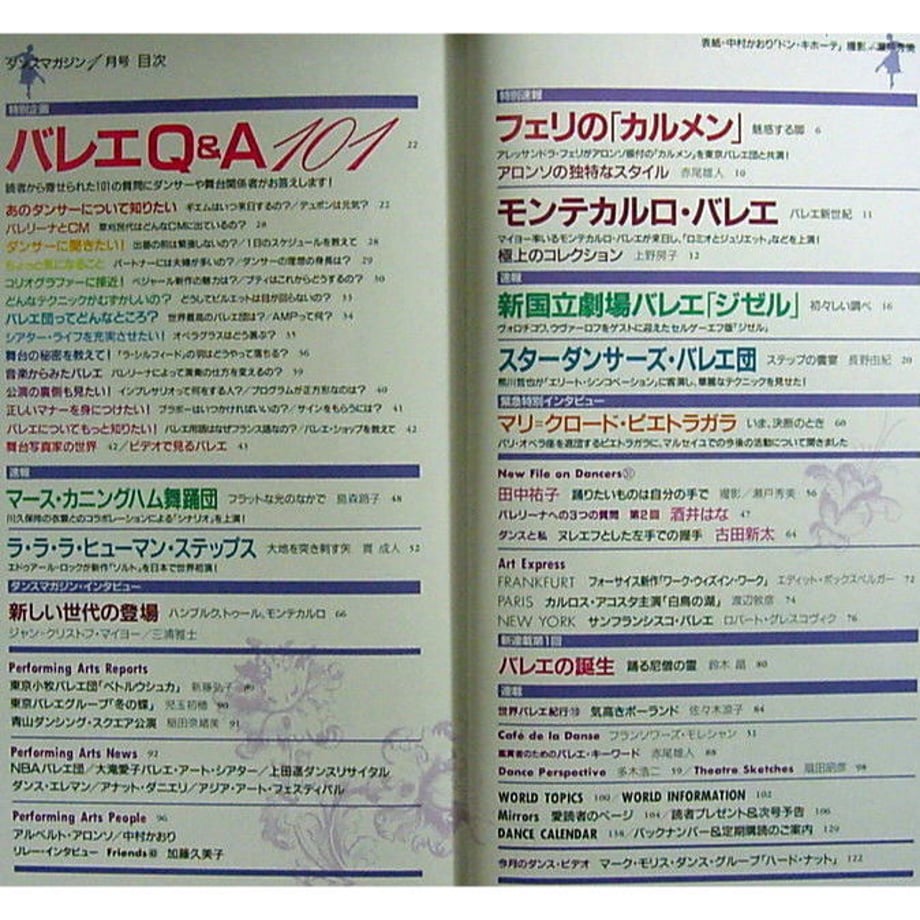 ダンスマガジン1月号 目次
特別企画
バレエQ&A101 22
読者から寄せられた101の質問にダンサーや舞台関係者がお答えします!
あのダンサーについて知りたい ギエムはいつ来日するの?/デュポンは元気? 22
バレリーナとCM 草刈民代はどんなCMに出ているの? 28
ダンサーに聞きたい! 出番の前は緊張しないの?/1日のスケジュールを教えて 28
ちょっと気になること パートナーには夫婦が多いの?/ダンサーの理想の身長は? 29
コリオグラファーに接近! ベジャール新作の魅力は?/プティはこれからどうするの? 30
どんなテクニックがむずかしいの? どうしてピルエットは目が回らないの? 33
バレエ団ってどんなところ? 世界最高のバレエ団は?/AMPって何? 34
シアター・ライフを充実させたい! オペラグラスはどう選ぶ? 35
舞台の秘密を教えて! 「ラ・シルフィード」の羽はどうやって落ちる? 36
音楽からみたバレエ バレリーナによって演奏の仕方を変えるの? 39
公演の裏側も見たい! インプレサリオって何をする人?/プログラムが正方形なのは? 40
正しいマナーを身につけたい! ブラボーはいつかければいいの?/サインをもらうには? 41
バレエについてもっと知りたい! バレエ用語はなぜフランス語なの?/バレエ・ショップを教えて 42
舞台写真家の世界 42/ビデオで見るバレエ 43
速報
マース・カニングハム舞踊団 フラットな光のなかで 長森路子 48
川久保玲の衣裳とのコラボレーションによる「シナリオ」を上演!
ラ・ラ・ラ・ヒューマン・ステップス 大地を突き刺す矢 貫 成人 52
エドゥアール・ロックが新作「ソルト」を日本で世界初演!
ダンスマガジン・インタビュー
新しい世代の登場 ハンブルク、トゥール、モンテカルロ 66
ジャン=クリストフ・マイヨー/三浦雅士
Performing Arts Reports
東京小牧バレエ団「ペトルウシュカ」 新藤弘子 89
東京バレエグループ「冬の蝶」 児玉初穂 90
青山ダンシング・スクエア公演 稲田奈緒美 91
Performing Arts News 92
NBAバレエ団/大滝愛子バレエ・アート・シアター/上田遥ダンスリサイタル
ダンス・エレマン/アナット・ダニエリ/アジア・アート・フェスティバル
Performing Arts People 96
アルベルト・アロンソ/中村かおり
リレー・インタビュー Friends 加藤久美子
表紙・中村かおり「ドン・キホーテ」 撮影/瀬戸秀美
特別速報
フェリの「カルメン」 魅惑する脚 6
アレッサンドラ・フェリがアロンソ振付の「カルメン」を東京バレエ団と共演!
アロンソの独特なスタイル 赤尾雄人 10
モンテカルロ・バレエ バレエ新世紀 11
マイヨー率いるモンテカルロ・バレエが来日し、「ロミオとジュリエット」などを上演!
極上のコレクション 上野房子 12
速報
新国立劇場バレエ「ジゼル」 初々しい調べ 16
ヴォロチコワ、ウヴァーロフをゲストに迎えたセルゲーエフ版「ジゼル」
スターダンサーズ・バレエ団 ステップの饗宴 長野由紀 20
熊川哲也が「エリート・シンコペーション」に客演し、華麗なテクニックを見せた!
緊急特別インタビュー
マリ=クロード・ピエトラガラ いま、決断のとき 60
パリ・オペラ座を退団するピエトラガラに、マルセイユでの今後の活動について聞きました
New File on Dancers
田中祐子 踊りたいものは自分の手で 撮影/瀬戸秀美 56
バレリーナへの3つの質問 第2回 酒井はな 47
ダンスと私 ヌレエフとした左手での握手 古田新太 64
Art Express
FRANKFURT フォーサイス新作「ワーク・ウィズイン・ワーク」 エディット・ボックスベルガー 72
PARIS カルロス・アコスタ主演「白鳥の湖」 渡辺敦彦 74
NEW YORK サンフランシスコ・バレエ ロバート・グレスコヴィク 76
新連載第1回
バレエの誕生 踊る尼僧の霊 鈴木 晶 80
連載
世界バレエ紀行⑲ 気高きポーランド 佐々木涼子 84
Café de la Danse フランソワーズ・モレシャン 51
鑑賞者のためのバレエ・キーワード 赤尾雄人 88
Dance Perspective 多木浩二 59/Theatre Sketches 扇田昭彦 98
WORLD TOPICS 100/WORLD INFORMATION 102
Mirrors 愛読者のページ 104/読者プレゼント&次号予告 106
DANCE CALENDAR 138/バックナンバー&定期購読のご案内 129
今月のダンス・ビデオ マーク・モリス・ダンス・グループ「ハード・ナット」 122